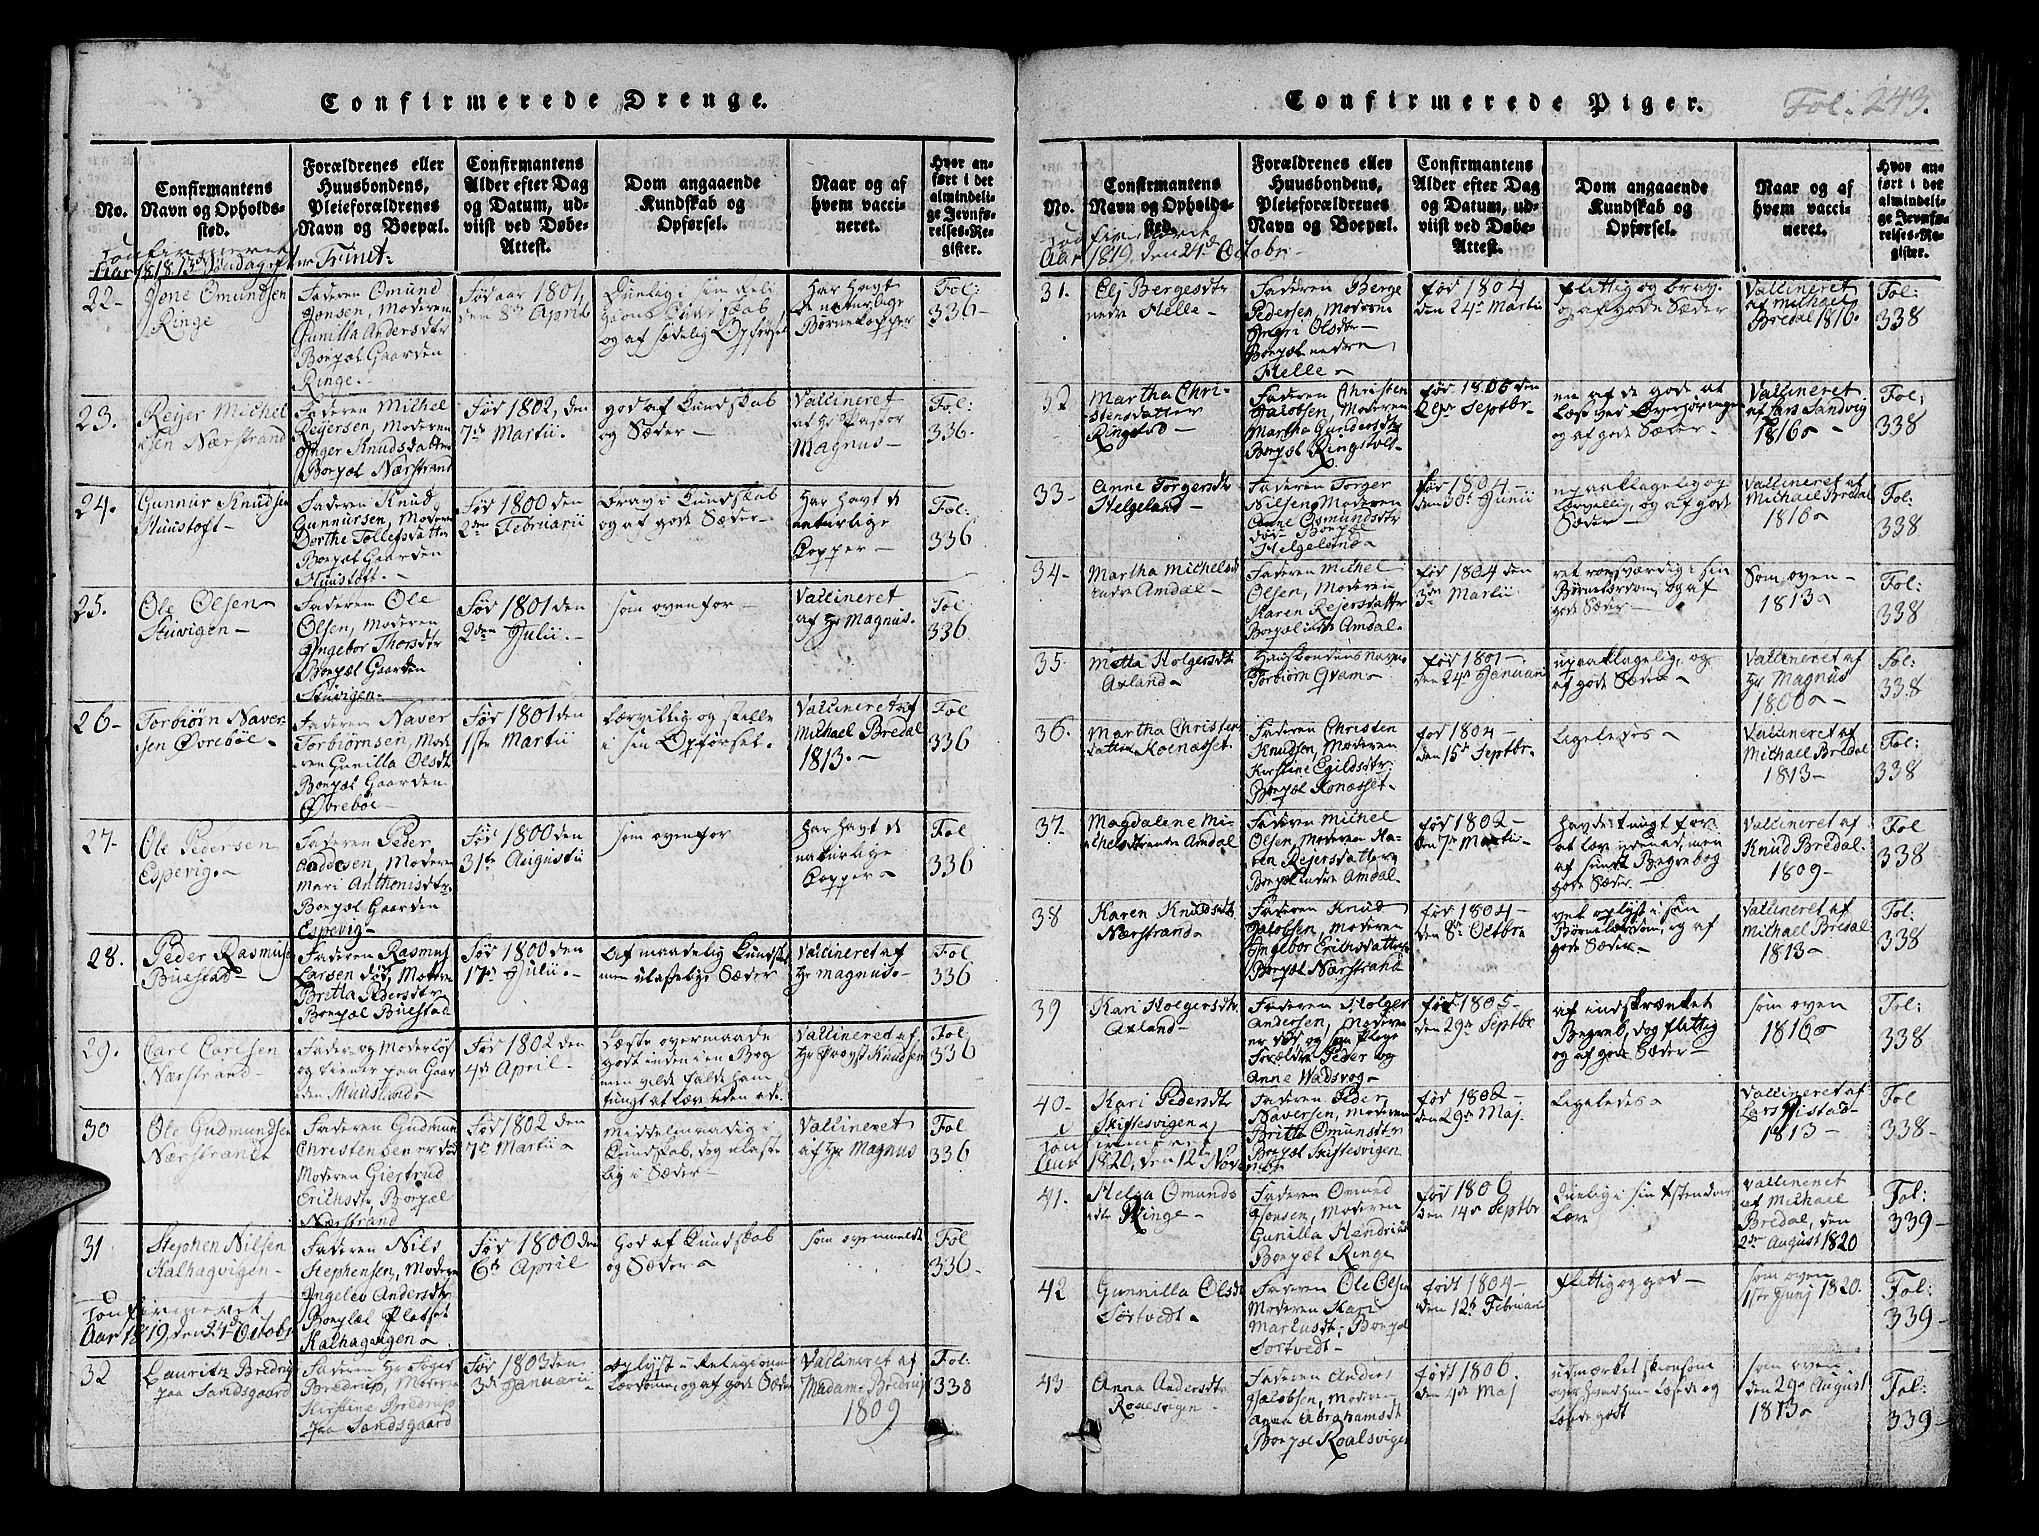 Confirmerede Drenge.
No.
Confirmantens Navn og Opholdssted.
Forældrenes eller Huusbondens, Pleieforældrenes Navn og Boepæl.
Confirmantens Alder efter Dag og Datum, udviist ved Døbe-Attest.
Dom angaaende Kundskab og Opførsel.
Naar og af hvem vaccineret.
Hvor anført i det almindelige Jevnførelses-Register.
Confirmeret
Aar 1818 Søndag efter Trinit:
22-
Jone Omundsen
Ringe
Faderen Omund
Jonsen, Moderen
Gunilla Andersdtr
Boepæl Gaarden
Ringe.-
Fød aar 1801,
den 8de April
og af sædelig Opførsel
Har havt
de naturlige
Børnekopper
Fol:
336-
23.
Reijer Michel
sen Nærstrand
Faderen Michel
Reijersen, Moderen
Inger Knudsdatter
Boepæl Nærstrand
Fød 1802, den
7de Martii.
god af Kundskab
og Sæder-
Vaccineret
af Hr Pastor
Magnus-
Fol:
336.
24.
Gunnur Knudsen
Muustoft-
Faderen Knud
Gunnursen, Moderen
Dorthe Tollefsdatter
Boepæl Gaarden
Muustoft.-
Fød 1800 den
2den Februarii
Brav i Kundskab
og af gode Sæder-
Har havt de
naturlige
Kopper-
Fol:
336
25.
Ole Olsen-
Stuvigen-
Faderen Ole
Olsen, Moderen
Ingebor Thorsdtr
Boepæl Gaarden
Stuvigen-
Fød 1801 den
2den Julii.-
som ovenfor-
Vaccineret
af Hr Magnus.
Fol:
336
26-
Torbiørn Naver
sen Øvrebøe-
Faderen Naver
Torbiørnsen, Mode
ren Gunilla Olsdtr
Boepæl Gaarden
Øvrebøe-
Fød 1801 den
1ste Martii
lærvillig og stille
i sin Opførsel.
Vaccineret af
Michael Bredal
1813.-
Fol
336
27-
Ole Pedersen
Espevig.-
Faderen Peder
Addesen, Moderen
Mari Anthonisdtr
Boepæl Gaarden
Espevig-
Fød 1800 den
31te Augustii
som ovenfor
Har havt de
naturlige
Kopper-
Fol
336
28.
Peder Rasmusen
Buestad
Faderen Rasmus
Larsen død, Moderen
Britta Pedersdtr
Boepæl Buestad
Fød 1800 den
17de Julii.-
Af maadelig Kundskab
men ulastelige Sæder
Vaccineret af
Hr Magnus-
Fol
336
29.
Carl Carlsen
Nærstrand-
Fader og Moderløs
og tiener paa Gaar
den Muusland-
Fød 1802 den
4de April-
Læste overmaade
godt inden i en Bog
Vaccineret af
Hr Provst Knudsen
Fol:
336
30
Ole Gudmundsen
Nærstrand
Faderen Gudmund
Christensen er død
Moderen Giertrud
Erichsdtr, Boepæl
Nærstrand
Fød 1802
7de Martii
Middelmaadig i
Kundskab, dog ulaste
lig i Sæder-
Vaccineret
af Hr Magnus
Fol
336
31
Stephen Nilsen
Kalhagvigen-
Faderen Nils
Stephensen, Moderen
Ingeleb Andersdtr
Boepæl Pladset
Kalhagvigen-
Fød 1800 den
6te April
God af Kundskab
og Sæder-
som ovenmeldt
Fol
336-
Confirmeret
Aar 1819, den 24de Octobr
32
Lauritz Bredrup
paa Sandsgaard
Faderen Hr Søger
Bredrup, Moderen
Kirstine Bredrup
paa Sandsgaard
Fød 1803 den
3de Januarii
oplyst i Religionens
Lærdomme og af gode Sæder
Vaccineret af
Madame Bredrup
1809
Fol:
338
Confirmerede Piger.
Fol. 243.
No.
Confirmantens Navn og Opholdssted.
Forældrenes eller Huusbondens, Pleieforældrenes Navn og Boepæl.
Confirmantens Alder efter Dag og Datum, udviist ved Døbe-Attest.
Dom angaaende Kundskab og Opførsel.
Naar og af hvem vaccineret.
Hvor anført i det almindelige Jevnførelses-Register.
Confirmeret
Aar 1819, den 24de Octobr-
31.
Elj Bergesdtr
nedre Helle-
Faderen Berge
Pedersen, Moderen
Ingri Olsdtr-
Boepæl nedre
Helle-
Fød 1804
den 24de Martii
flittig og brav
og af gode Sæder
Vaccineret
af Michael
Bredal 1816.
Fol:
338
32
Martha Chri-
stensdatter
Ringstad-
Faderen Christen
Jacobsen, Moderen
Martha Gundersdtr
Fød 1805 den
29de Septbr-
en af de gode at
læse ved Overhøringen
og af gode Sæder-
Vaccineret
af Lars Sandvig
1816-
Fol:
338
33-
Anne Torgersdtr
Helgeland-
Faderen Torger
Nilsen, Moderen
Anne Osmundsdtr
død- Boepæl
Helgeland-
Fød 1804-
den 30te Junii
upaaklagelig og
lærvillig, og af gode
Sæder-
Vaccineret af
Michael Bredal
1816-
Fol:
338
34-
Martha Michelsdtr
indre Amdal-
Faderen Michel
Olsen, Moderen
Karen Reiersdatter
Boepæl indre Amdal-
Fød 1804 den
3de Martii
ret roesværdig i sin
Børnelærdom, og af
gode Sæder-
Som oven-
1813-
Fol:
338
35.
Metta Holgersdtr
Axland-
Huusbondens Navn
Torbiørn Qvam-
Fød 1801-
den 24de Januarii
upaaklagelig, og
af gode Sæder-
Vaccineret af
Hr Magnus
1800-
Fol:
338
36.
Martha Christens
datter Konasset-
Faderen Christen
Knudsen, Moderen
Kirstine Egildsdtr:
Boepæl Konasset-
Fød 1804-
den 15de Septbr-
Ligeledes-
Vaccineret af
Michael Bredal
1813-
Fol:
338
37-
Magdalene Mi-
chelsdtr indre Amdal
Faderen Michel
Olsen, Moderen Ka-
ren Reiersdatter
Boepæl indre Amdal-
Fød 1802-
den 7de Martii-
havde tungt for
at lære udenad, men
af sundt Begreb og
gode Sæder-
Vaccineret af
Knud Bredal.
1809-
Fol
338
38
Karen Knudsdtr
Nærstrand-
Faderen Knud
Jacobsen, Moderen
Ingebor Erichsdatter
Boepæl Nærstrand
Fød 1804-
den 8de Octbr-
vel oplyst i sin
Børnelærdom, og af
gode Sæder-
Vaccineret af
Michael Bredal
1813-
Fol:
338
39
Kari Holgersdtr
Axland-
Faderen Holger
Andersen, Moderen
er død og som Pleje
Forældre Peder og
Anne Wadsvog-
Fød 1805-
den 29de Septbr
af indskrænket
Begreb, dog flittig
og af gode Sæder-
som oven
1816-
Fol:
338
40-
Kari Pedersdtr
Skiftesvigen-
Faderen Peder
Naversen, Moderen
Britta Omunsdtr
Boepæl Skiftesvigen
Fød 1802-
den 29de Maj.
Ligeledes-
Vaccineret af
1813-
Fol
338-
Confirmeret
Aar 1820, den 12te Novembr
41.
Helga Omunds
dtr Ringe-
Faderen Omund
Jonsen, Moderen
Gunilla Hendrichsdtr
Boepæl Ringe
Fød 1806
den 14de Septbr
duelig i sin Christendoms
Lære
Vaccineret
af Michael
Bredal, den
2den August 1820
Fol:
339-
42
Gunnilla Olsdtr
Tørtvedt-
Faderen Ole Olsen
Moderen Kari
Markusdtr; Boepæl
Tortvedt-
Født 1804-
den 12te Februarii
flittig og god-
som oven
1ste Junj 1820.
Fol:
339-
43
Anna Andersdtr
Roalsvigen-
Faderen Anders
Jacobsen, Moderen
Anna Abrahamsdtr
Boepæl Roalsvigen
Født 1806.
den 4de Maj
som oven
den 29de August
1813-
Fol:
339-